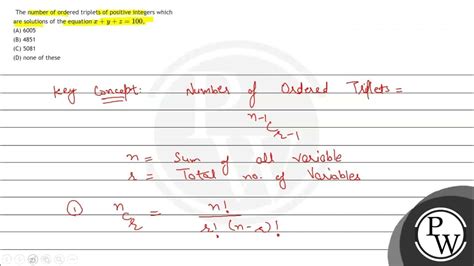 The number of ordered triplets of positive integers which
are solutions of the equation x + y + z = 100,
(A) 6005
(B) 4851
(C) 5081
(D) none of these
Key Concept: Number of Ordered Triplets =
n-1Cr-1
n = Sum of all variable
r = Total no. of Variables
① nCr = n! / r! (n-r)!
PW
PW